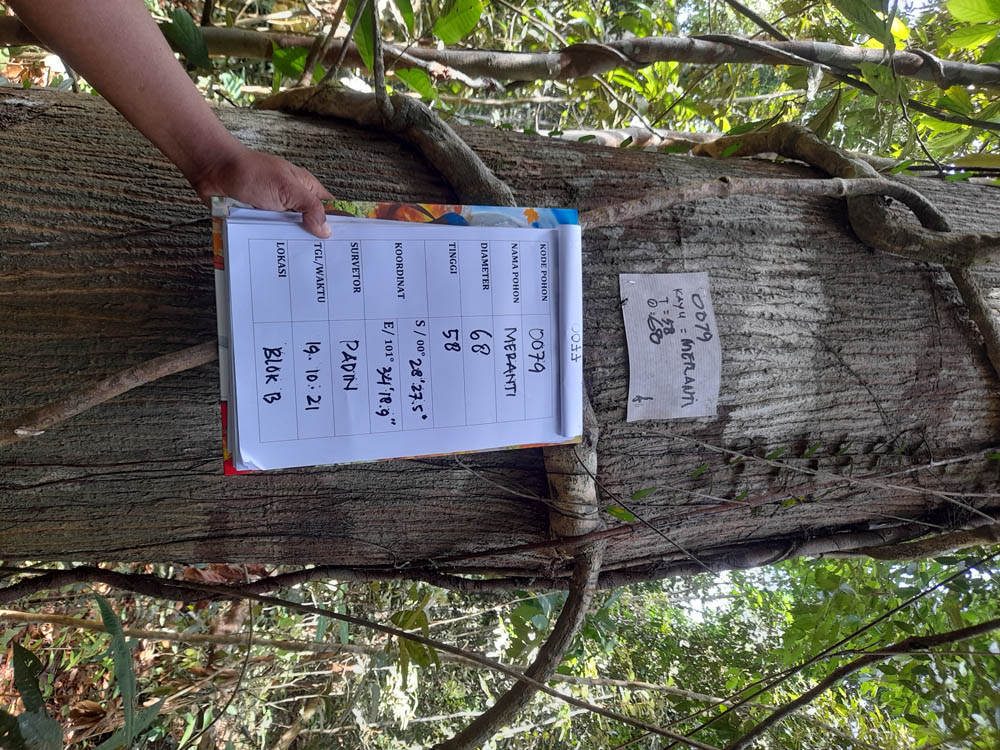 0079
KAYU = MERANTI
T = 58
⊙ : 68
KODE POHON 0079
NAMA POHON MERANTI
DIAMETER 68
TINGGI 58
KOORDINAT S / 00° 28'27.5"
E/ 101° 34'18.9"
SURVETOR PADIN
TGL/WAKTU 19. 10. 21
LOKASI BLOK B